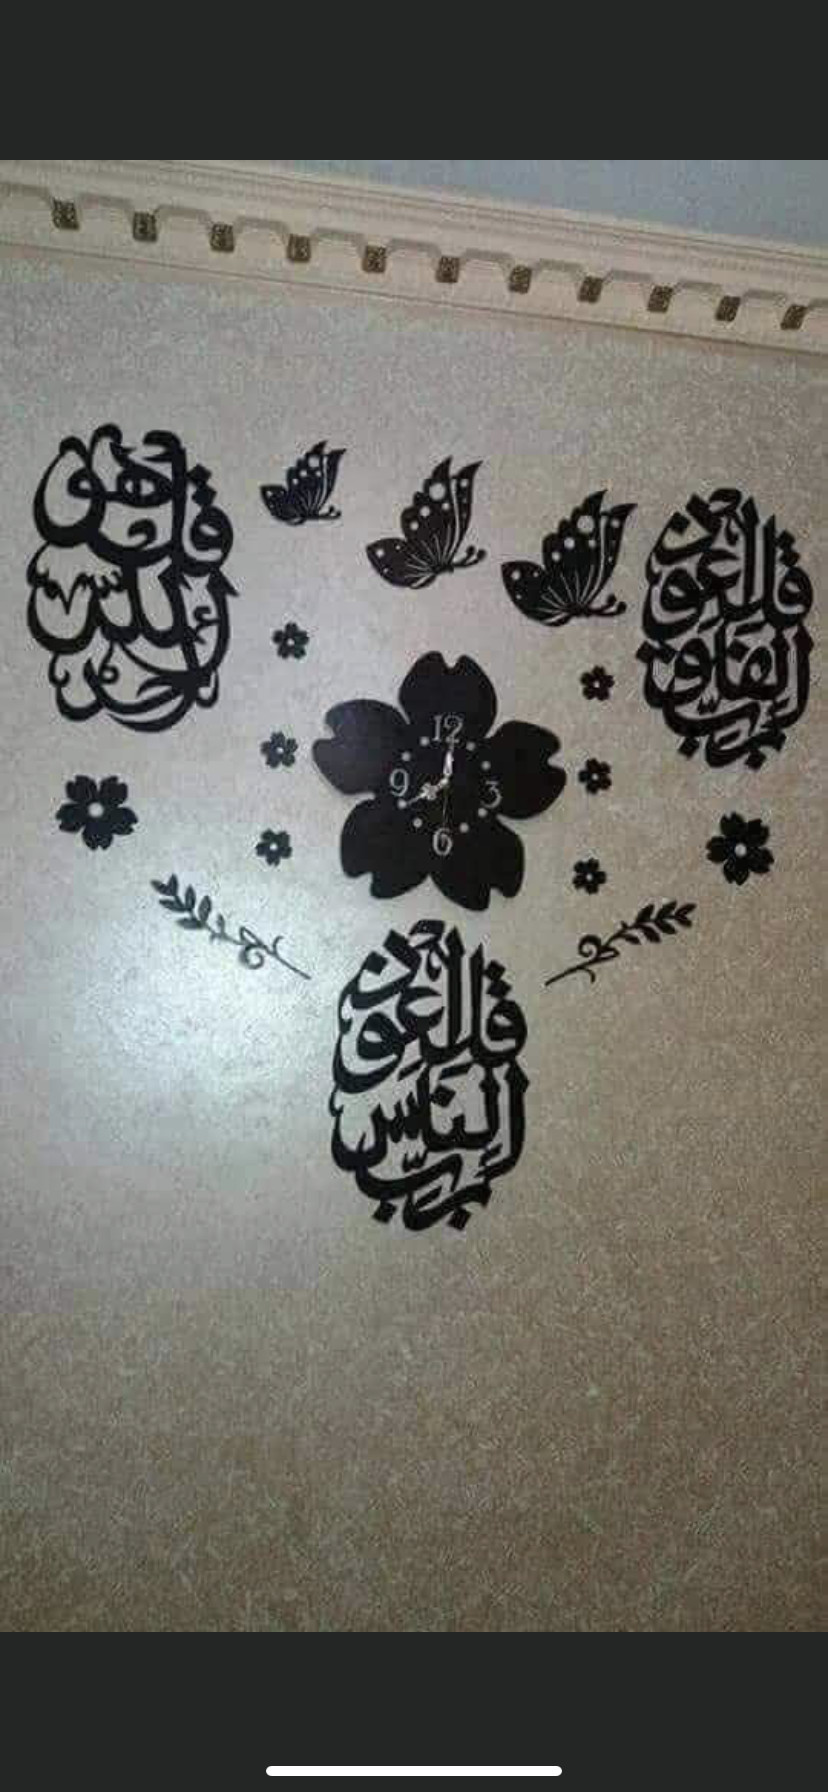 قل هو
الله
أحد
قل أعوذ
برب الفلق
12
9
3
6
قل أعوذ
برب الناس